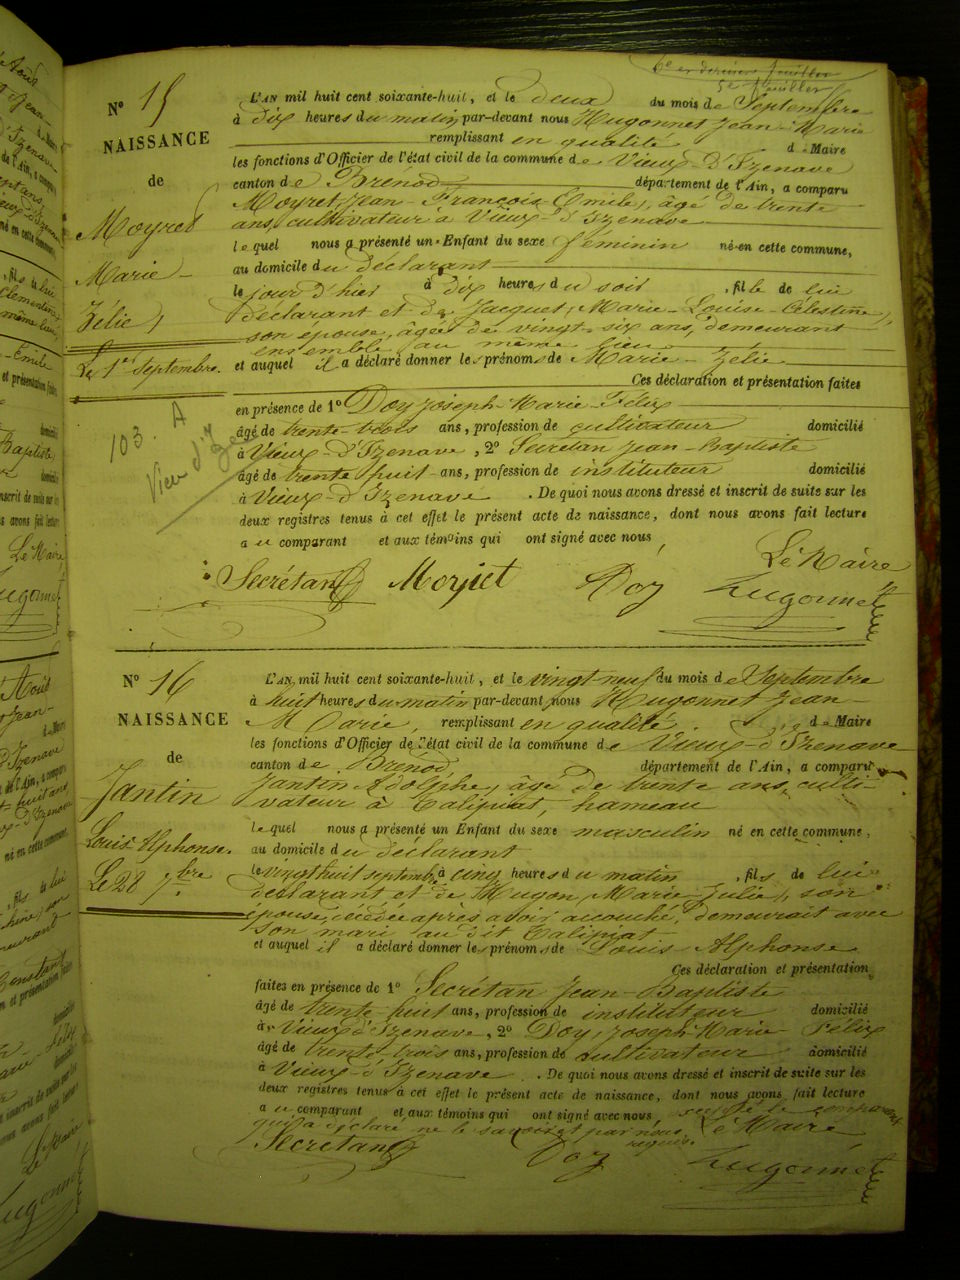 6e et dernier feuillet
5e feuillet
N° 15
NAISSANCE
de
Moyret
Marie
Zélie
Le 1er septembre.
103. A
Vieu d'Ize
L'AN mil huit cent soixante-huit, et le deux du mois de Septembre
à dix heures du matin, par-devant nous Hugonnet Jean-Marie
remplissant en qualité de Maire
les fonctions d'Officier de l'état civil de la commune de Vieux-d'Izenave
canton de Brénod département de l'Ain, a comparu
Moyret, Jean-François-Emile, âgé de trente
ans, cultivateur à Vieux-d'Izenave
lequel nous a présenté un Enfant du sexe féminin né en cette commune,
au domicile du déclarant
le jour d'hier à dix heures du soir, fille de lui
déclarant et de Jacquet, Marie-Louise-Célestine,
son épouse, âgée de vingt-six ans, demeurant
ensemble au même lieu
et auquel il a déclaré donner les prénoms de Marie-Zélie
Ces déclaration et présentation faites
en présence de 1° Doy Joseph-Marie-Félix
âgé de trente-trois ans, profession de cultivateur domicilié
à Vieux-d'Izenave, 2° Secrétan Jean-Baptiste
âgé de trente huit ans, profession de instituteur domicilié
à Vieux-d'Izenave. De quoi nous avons dressé et inscrit de suite sur les
deux registres tenus à cet effet le présent acte de naissance, dont nous avons fait lecture
au comparant et aux témoins qui ont signé avec nous,
Le Maire
Secrétan Moyret Doy Hugonnet
N° 16
NAISSANCE
de
Jantin
Louis Alphonse.
Le 28 7.bre
L'AN mil huit cent soixante-huit, et le vingt neuf du mois de Septembre
à huit heures du matin par-devant nous Hugonnet Jean-
Marie, remplissant en qualité de Maire
les fonctions d'Officier de l'état civil de la commune de Vieux-d'Izenave
canton de Brénod département de l'Ain, a comparu
Jantin Adolphe, âgé de trente ans, culti-
vateur à Talipiat, hameau
lequel nous a présenté un Enfant du sexe masculin né en cette commune,
au domicile du déclarant
le vingt huit septembre à cinq heures du matin, fils de lui
déclarant et de Mugon, Marie-Julie, son
épouse, décédée après avoir accouché, demeurait avec
son mari au dit Talipiat
et auquel il a déclaré donner les prénoms de Louis Alphonse
Ces déclaration et présentation
faites en présence de 1° Secrétan Jean-Baptiste
âgé de trente-huit ans, profession de instituteur domicilié
à Vieux d'Izenave, 2° Doy, Joseph-Marie-Félix
âgé de trente-trois ans, profession de cultivateur domicilié
à Vieux-d'Izenave. De quoi nous avons dressé et inscrit de suite sur les
deux registres tenus à cet effet le présent acte de naissance, dont nous avons fait lecture
au comparant et aux témoins qui ont signé avec nous, excepté le comparant
qui a déclaré ne le savoir et par nous requis. Le Maire
Secrétan Doy Hugonnet